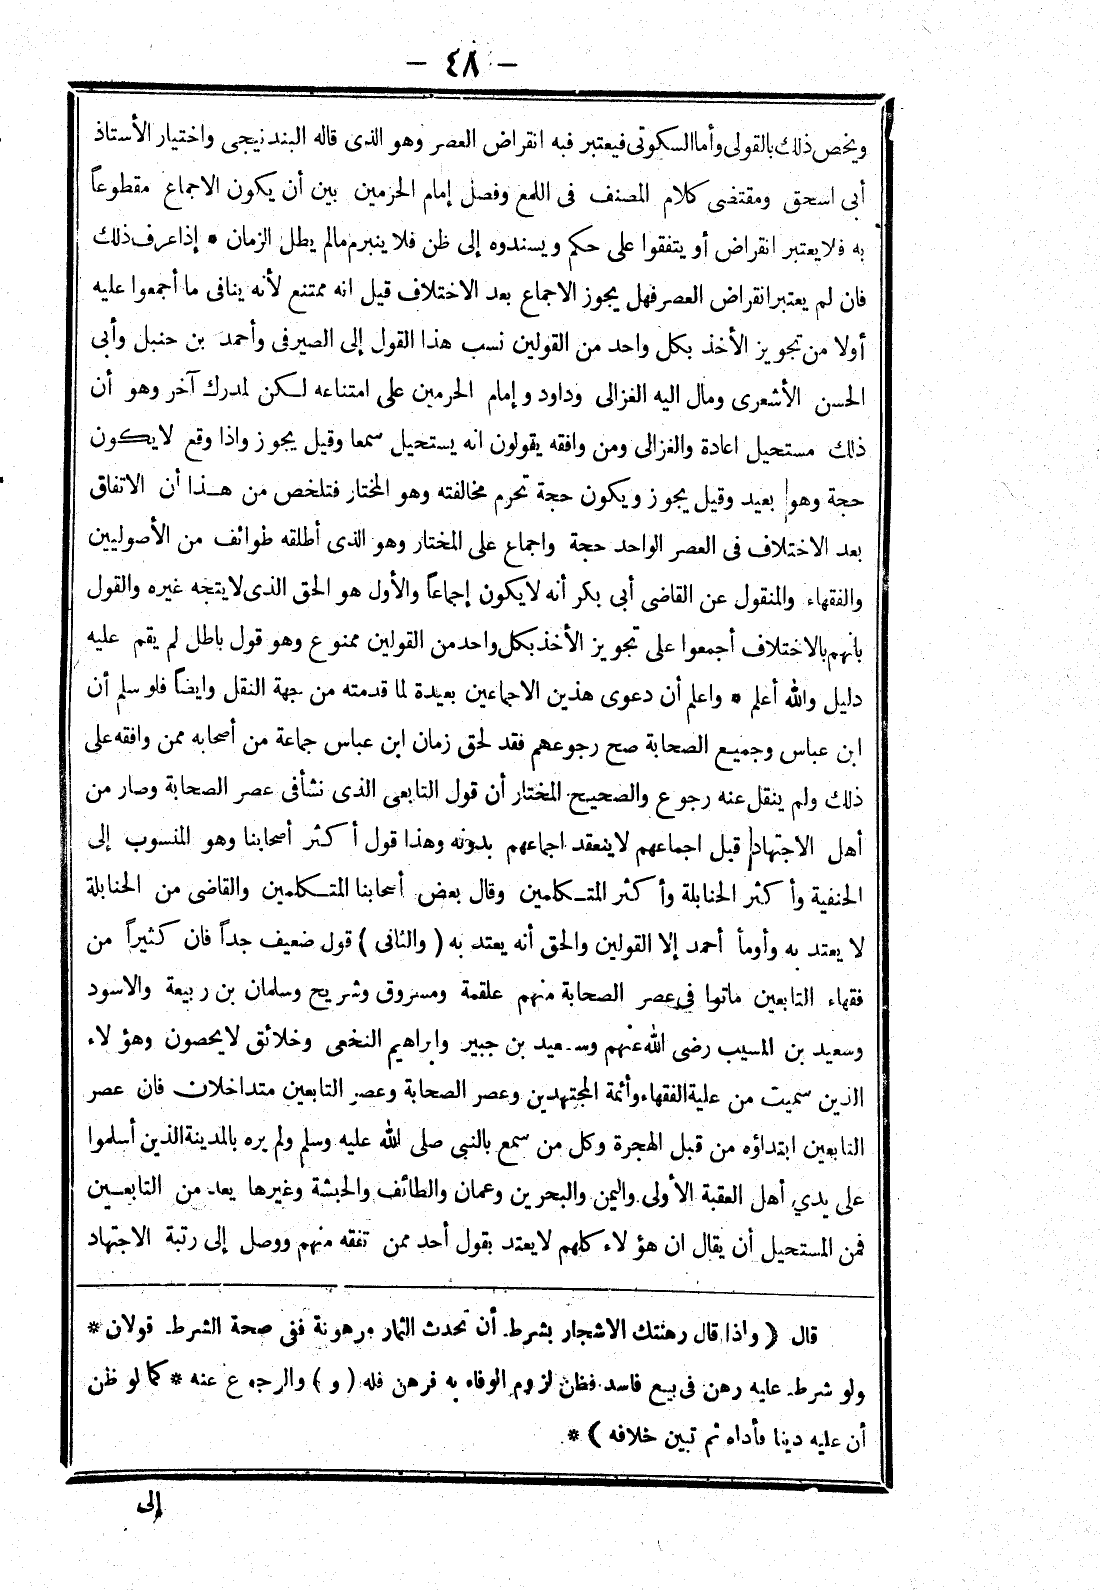 - ٤٨ -
ويخص ذلك بالقولى وأما السكوتى فيعتبر فيه انقراض العصر وهو الذى قاله البندنيجى واختيار الأستاذ
أبى اسحق ومقتضى كلام المصنف فى اللمع وفصل إمام الحرمين بين أن يكون الاجماع مقطوعاً
به فلا يعتبر انقراض أو يتفقوا على حكم ويسندوه إلى ظن فلا ينبرم مالم يطل الزمان * إذا عرف ذلك
فان لم يعتبر انقراض العصر فهل يجوز الاجماع بعد الاختلاف قيل انه ممتنع لأنه ينافى ما أجمعوا عليه
أولا من تجويز الأخذ بكل واحد من القولين نسب هذا القول إلى الصيرفى وأحمد بن حنبل وأبى
الحسن الأشعرى ومال اليه الغزالى وداود وإمام الحرمين على امتناعه لكن لمدرك آخر وهو أن
ذلك مستحيل اعادة والغزالى ومن وافقه يقولون انه يستحيل سمعا وقيل يجوز واذا وقع لا يكون
حجة وهو بعيد وقيل يجوز ويكون حجة تحرم مخالفته وهو المختار فتلخص من هذا أن الاتفاق
بعد الاختلاف فى العصر الواحد حجة واجماع على المختار وهو الذى أطلقه طوائف من الأصوليين
والفقهاء والمنقول عن القاضى أبى بكر أنه لا يكون إجماعاً والأول هو الحق الذى لا يتجه غيره والقول
بأنهم بالاختلاف أجمعوا على تجويز الأخذ بكل واحد من القولين ممنوع وهو قول باطل لم يقم عليه
دليل والله أعلم * واعلم أن دعوى هذين الاجماعين بعيدة لما قدمته من جهة النقل وايضاً فلو سلم أن
ابن عباس وجميع الصحابة صح رجوعهم فقد لحق زمان ابن عباس جماعة من أصحابه ممن وافقه على
ذلك ولم ينقل عنه رجوع والصحيح المختار أن قول التابعى الذى نشأ فى عصر الصحابة وصار من
أهل الاجتهاد قبل اجماعهم لا ينعقد اجماعهم بدونه وهذا قول أكثر أصحابنا وهو المنسوب إلى
الحنفية وأكثر الحنابلة وأكثر المتكلمين وقال بعض أصحابنا المتكلمين والقاضى من الحنابلة
لا يعتد به وأومأ أحمد إلا القولين والحق أنه يعتد به ( والثانى ) قول ضعيف جداً فان كثيراً من
فقهاء التابعين ماتوا فى عصر الصحابة منهم علقمة ومسروق وشريح وسلمان بن ربيعة والاسود
وسعيد بن المسيب رضى الله عنهم وسعيد بن جبير وابراهيم النخعى وخلائق لا يحصون وهؤلاء
الذين سميت من علية الفقهاء وأئمة المجتهدين وعصر الصحابة وعصر التابعين متداخلان فان عصر
التابعين ابتداؤه من قبل الهجرة وكل من سمع بالنبى صلى الله عليه وسلم ولم يره بالمدينة الذين أسلموا
على يدي أهل العقبة الأولى واليمن والبحرين وعمان والطائف والحبشة وغيرها يعد من التابعين
فمن المستحيل أن يقال ان هؤلاء كلهم لا يعتد بقول أحد ممن تفقه منهم ووصل إلى رتبة الاجتهاد
قال ( واذا قال رهنتك الاشجار بشرط أن تحدث الثمار مرهونة ففى صحة الشرط قولان *
ولو شرط عليه رهن فى بيع فاسد فظن لزوم الوفاء به فرهن فله ( و ) والرجوع عنه * كما لو ظن
أن عليه دينا فأداه ثم تبين خلافه ) *
إلى